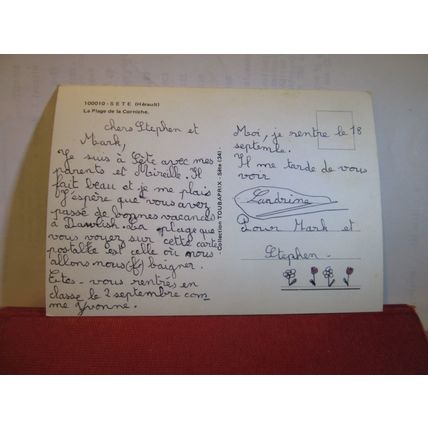 100010 - SETE (Hérault)
La Plage de la Corniche.
chers Stephen et
Mark,
Je suis à Sète avec mes
parents et Mireille. Il
fait beau et je me plais
J'espère que vous avez
passé de bonnes vacances
à Dawlish. La plage que
vous voyer sur cette carte
postalte est celle où nous
allons nous baigner.
Êtes-vous rentrés en
classe le 2 septembre com
me Yvonne.
- Collection TOUBAPRIX - Sète (34) -
Moi, je rentre le 18
septembre.
Il me tarde de vous
voir
Sandrine
Pour Mark et
Stephen -